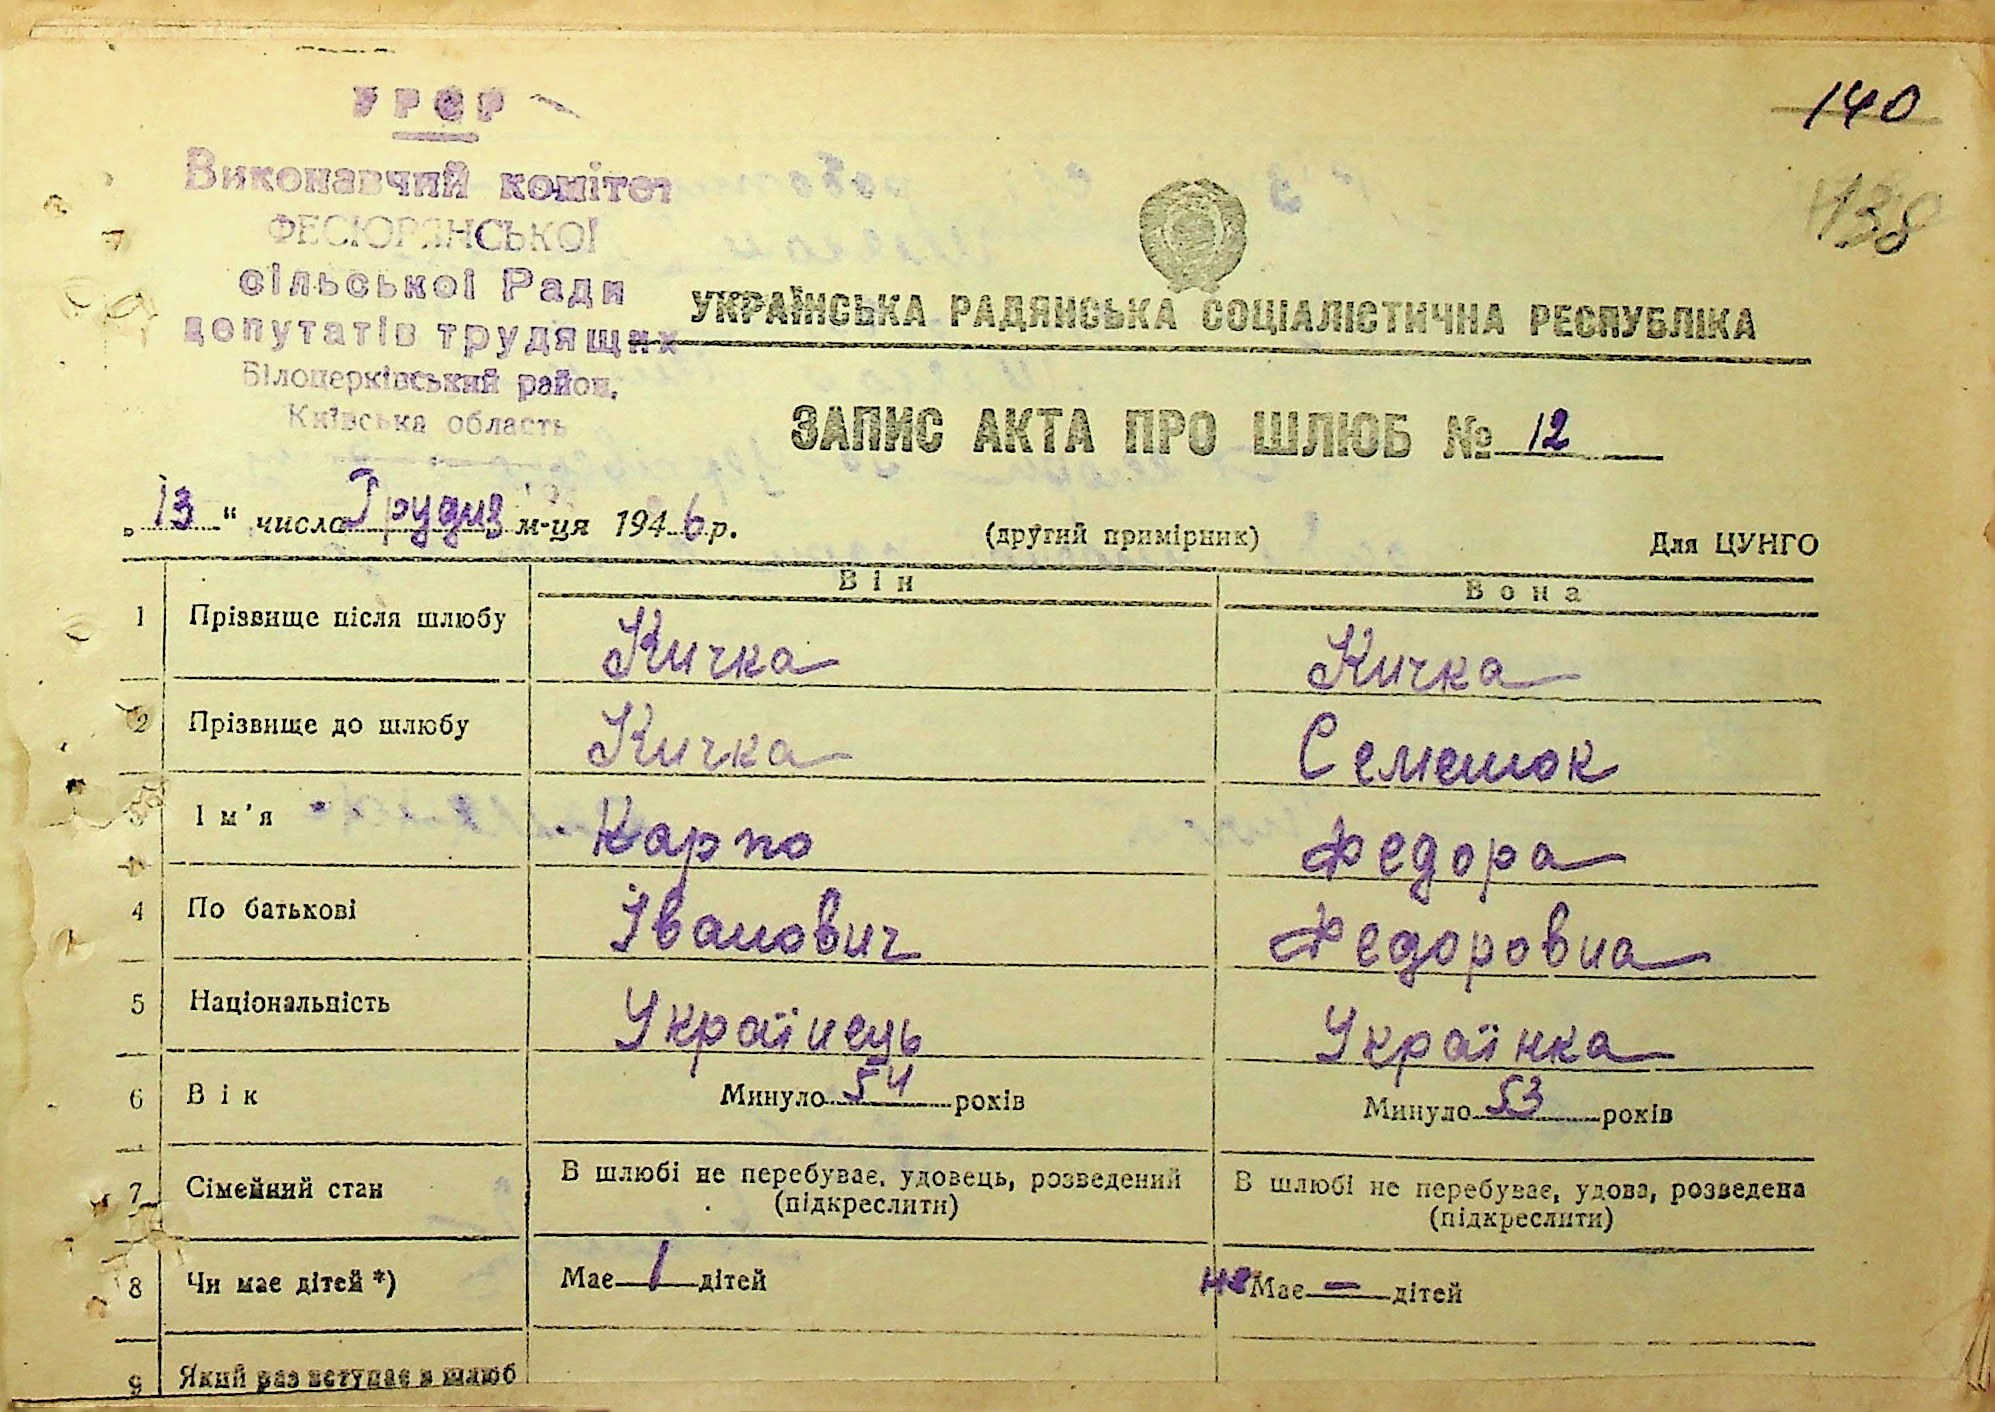 140
138
УРСР
Виконавчий комітет
ФЕСЮРЯНСЬКОЇ
сільської Ради
депутатів трудящих
Білоцерківський район,
Київська область
УКРАЇНСЬКА РАДЯНСЬКА СОЦІАЛІСТИЧНА РЕСПУБЛІКА
ЗАПИС АКТА ПРО ШЛЮБ № 12
„13“ число Грудня м-ця 1946 р.
(другий примірник)
Для ЦУНГО
Він Вона
1 Прізвище після шлюбу Кичка Кичка
2 Прізвище до шлюбу Кичка Семенюк
3 Ім'я Карпо Федора
4 По батькові Іванович Федоровна
5 Національність Українець Українка
6 Вік Минуло 54 років Минуло 53 років
7 Сімейний стан В шлюбі не перебуває, удовець, розведений (підкреслити) В шлюбі не перебуває, удова, розведена (підкреслити)
8 Чи має дітей *) Має 1 дітей не Має — дітей
9 Який раз вступає в шлюб